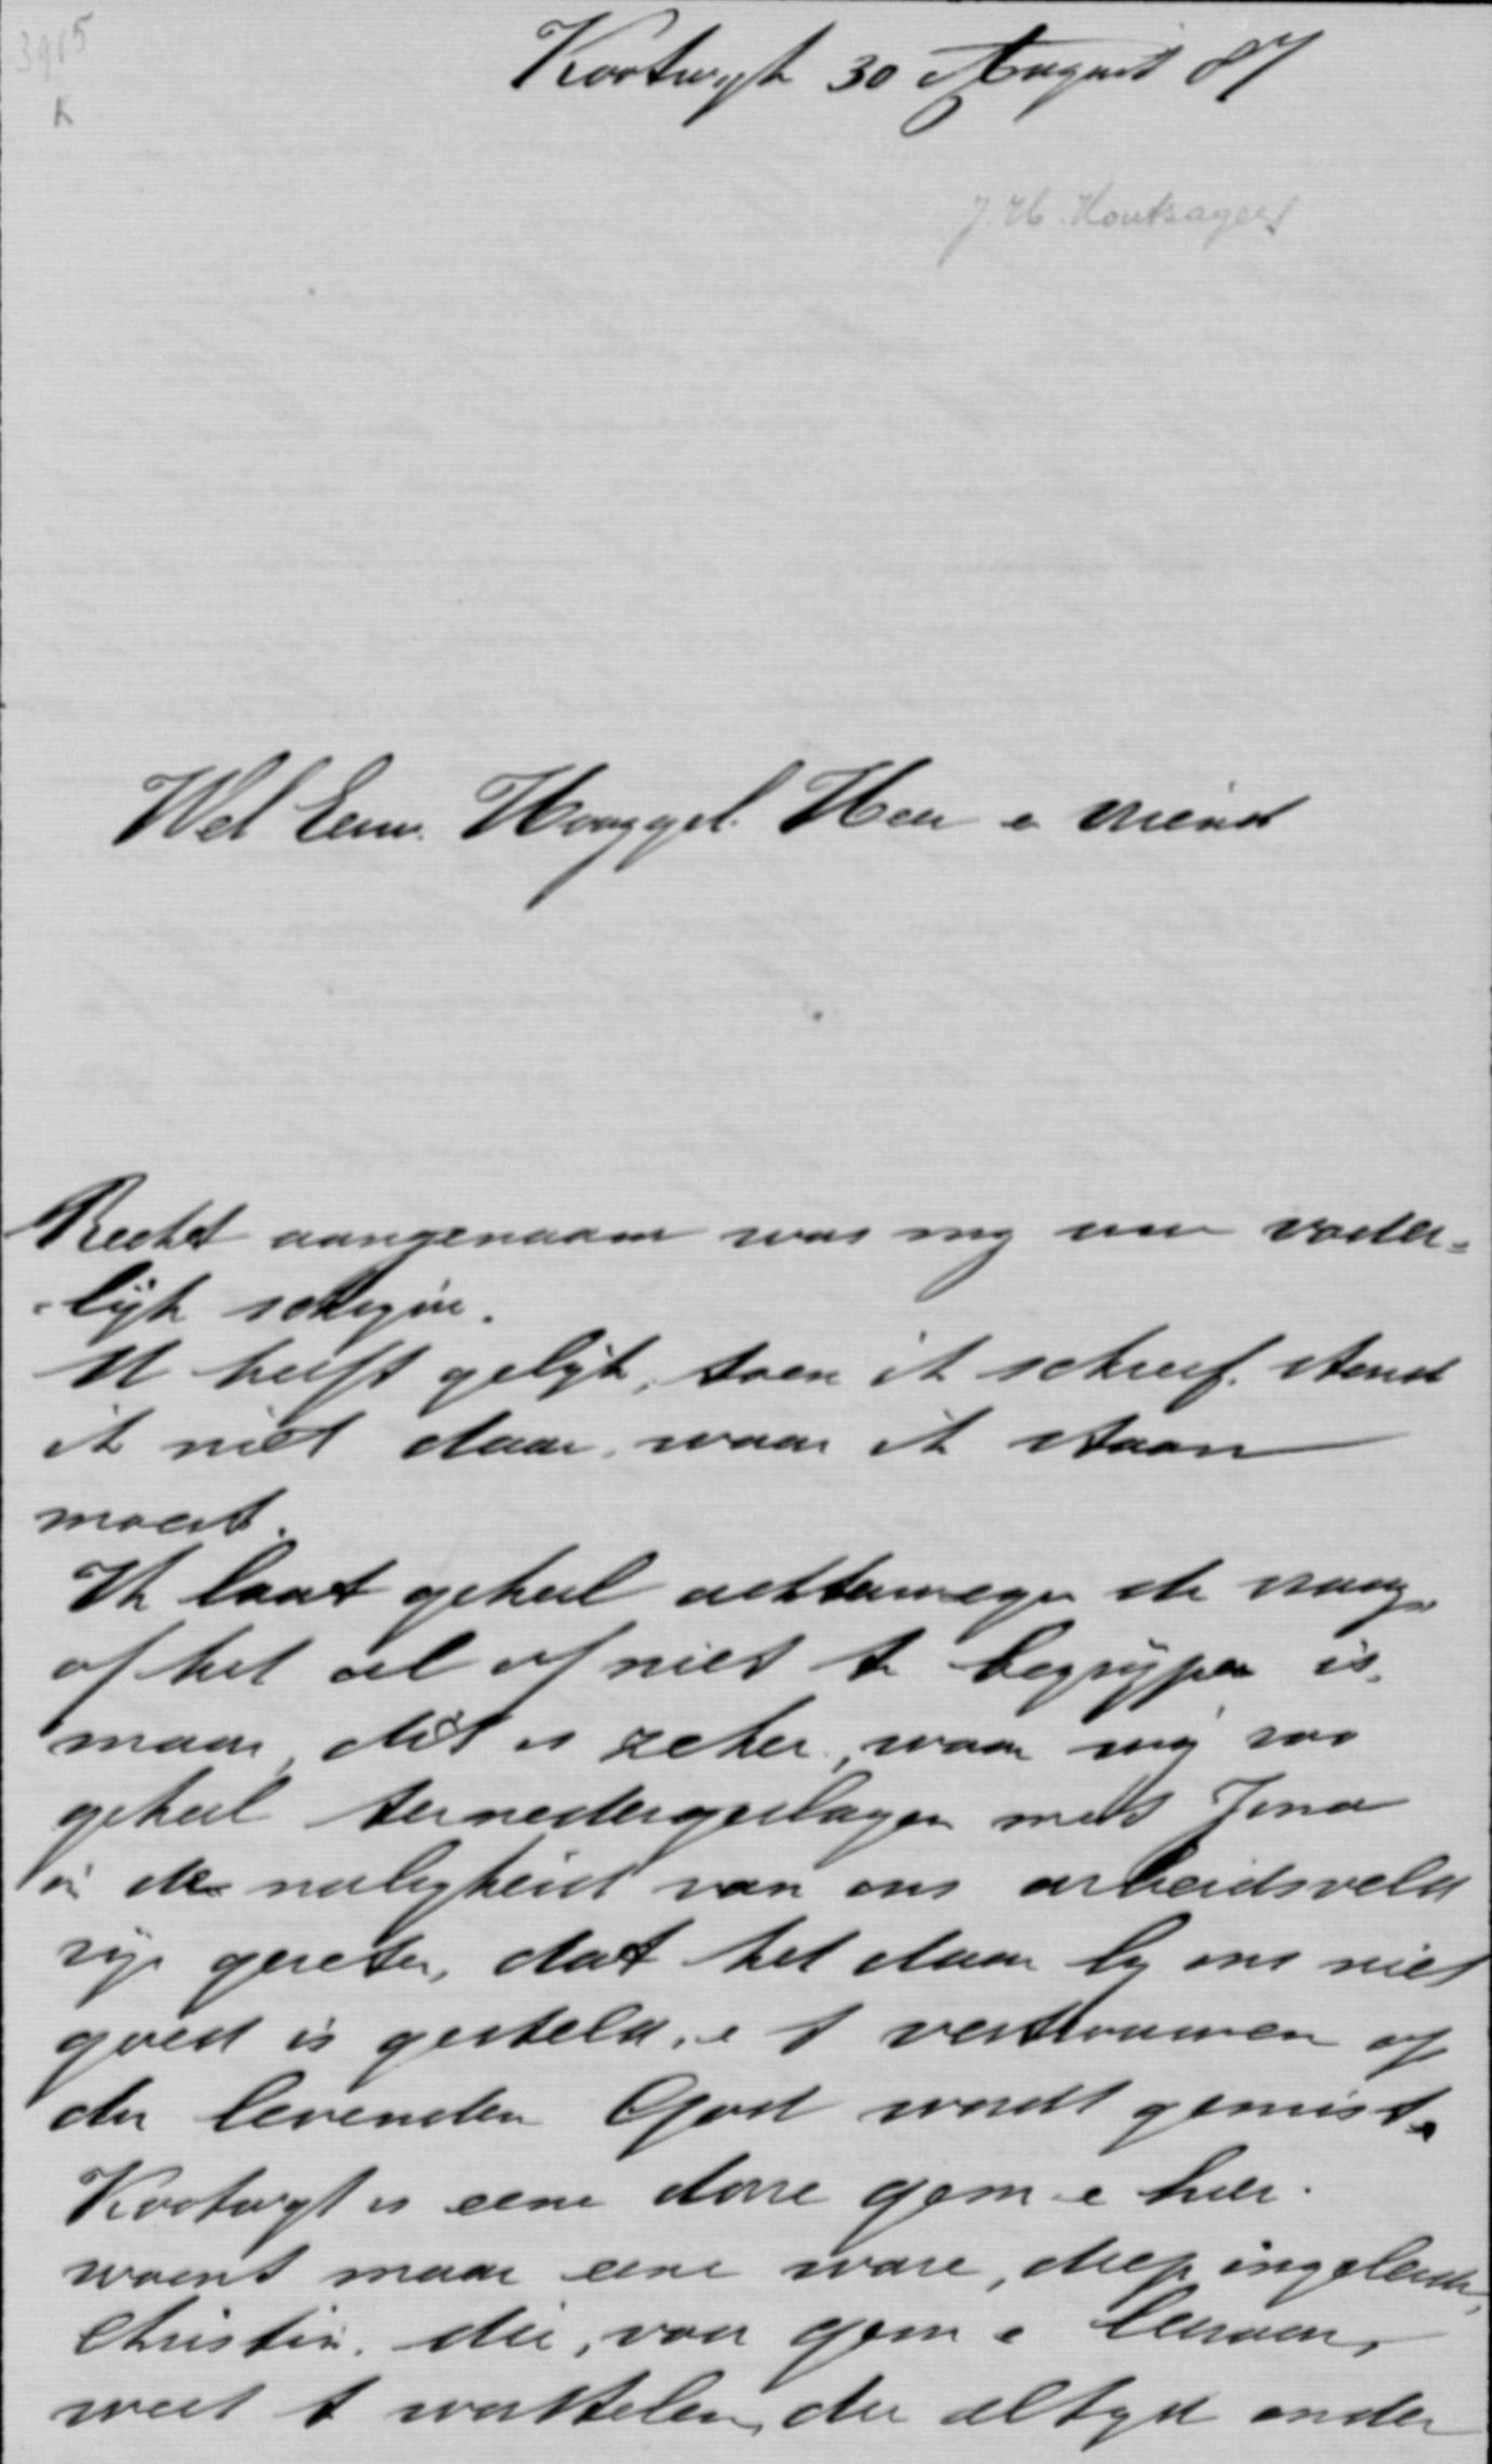 3965
K
Kootwijk 30 August 87
J. H. Houtzagers
Wel Eerw. Hooggel. Heer e vriend
Recht aangenaam was mij uw vader-
-lijk schrijven.
U heeft gelijk, toen ik schreef. stond
ik niet daar, waar ik staan
moest.
Ik laat geheel achterwege de vraag,
of het al of niet te begrijpen is,
maar, dit is zeker, waar wij zoo
geheel ternedergeslagen met Jona
in de naligheid van ons arbeidsveld
zijn gezeten, dat het daar bij ons niet
goed is gesteld, e t vertrouwen op
den levenden God wordt gemist.
Kootwijk is eene dorre gem. e hier
woont maar eene ware, diep ingeleide
Christin. die, voor gem. e leeraar,
weet te worstelen, die altijd onder